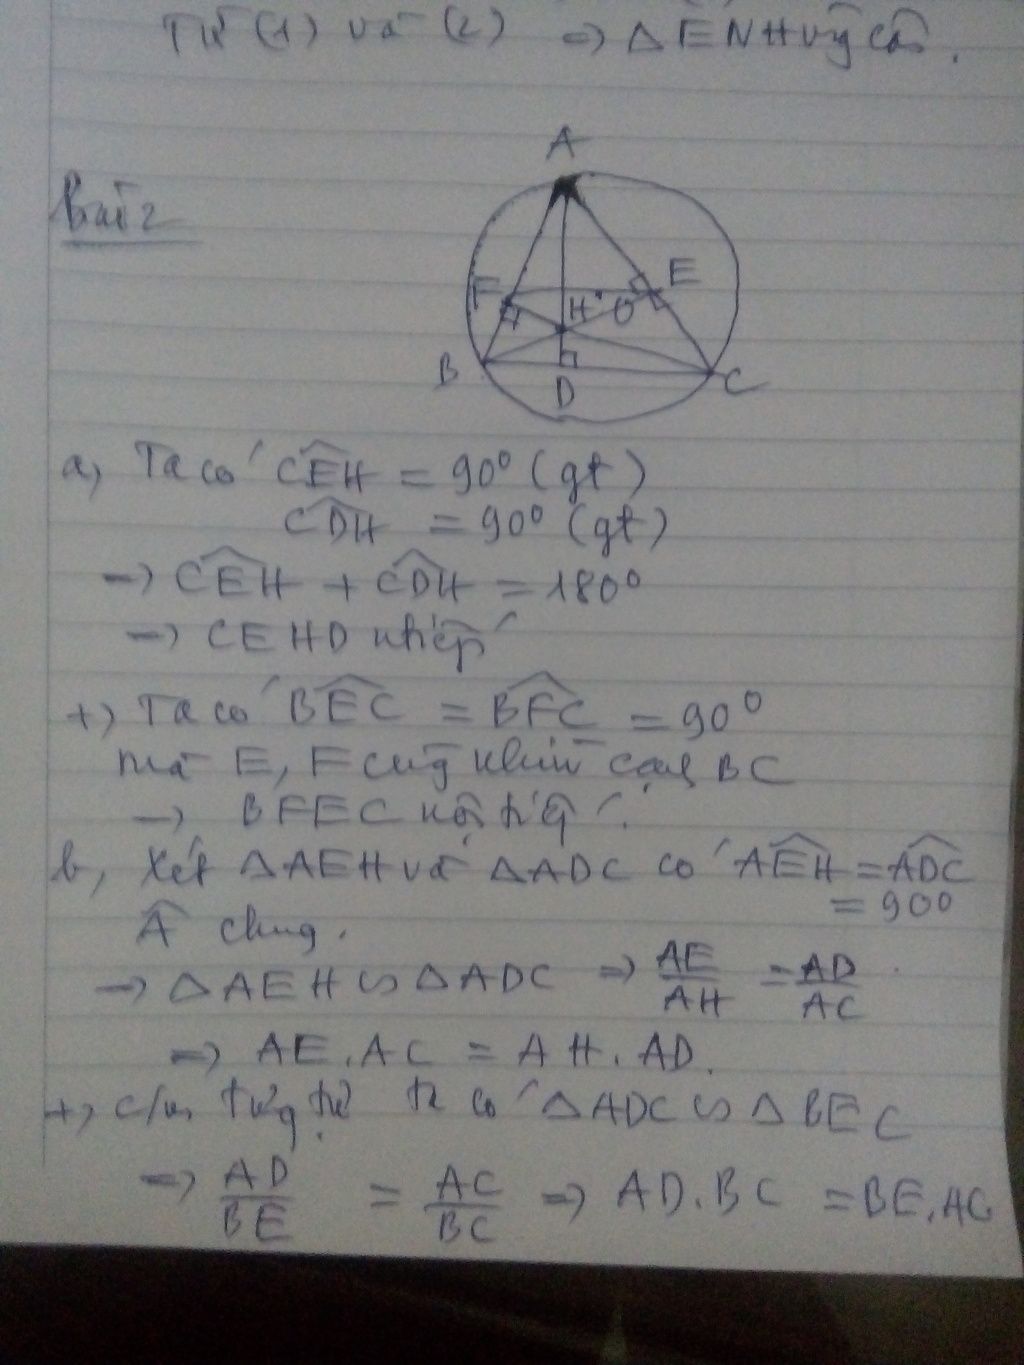 Từ (1) và (2) => △ENH vg cân.
Bài 2
A
F
E
H
O
B
D
C
a, Ta có CEH = 90° (gt)
CDH = 90° (gt)
-> CEH + CDH = 180°
-> CEHD ntiếp
+, Ta có BEC = BFC = 90°
mà E, F cùng nhìn cạnh BC
-> BFEC nội tiếp.
b, Xét △AEH và △ADC có AEH = ADC
= 90°
A chung.
-> △AEH ∽ △ADC => AE/AH = AD/AC
=> AE.AC = AH.AD.
+, c/m tương tự ta có △ADC ∽ △BEC
=> AD/BE = AC/BC => AD.BC = BE.AC